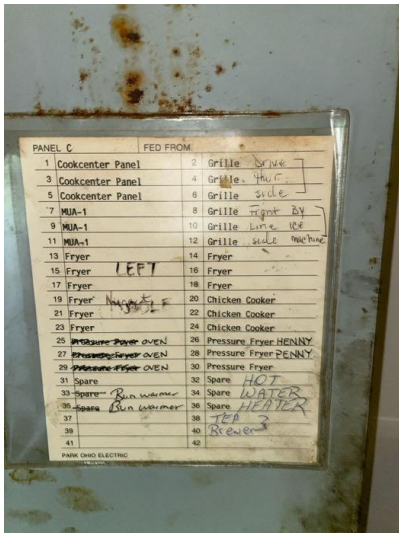 PANEL C FED FROM
1 Cookcenter Panel 2 Grille Drive
3 Cookcenter Panel 4 Grille thur
5 Cookcenter Panel 6 Grille side
7 MUA-1 8 Grille Front By
9 MUA-1 10 Grille Line ICE
11 MUA-1 12 Grille side machine
13 Fryer 14 Fryer
15 Fryer LEFT 16 Fryer
17 Fryer 18 Fryer
19 Fryer 20 Chicken Cooker
21 Fryer 22 Chicken Cooker
23 Fryer 24 Chicken Cooker
25 Pressure Fryer OVEN 26 Pressure Fryer HENNY
27 Pressure Fryer OVEN 28 Pressure Fryer PENNY
29 Pressure Fryer OVEN 30 Pressure Fryer
31 Spare 32 Spare HOT
33 Spare Bun warmer 34 Spare WATER
35 Spare Bun warmer 36 Spare HEATER
37 38 TEA
39 40 Brewer
41 42
PARK OHIO ELECTRIC